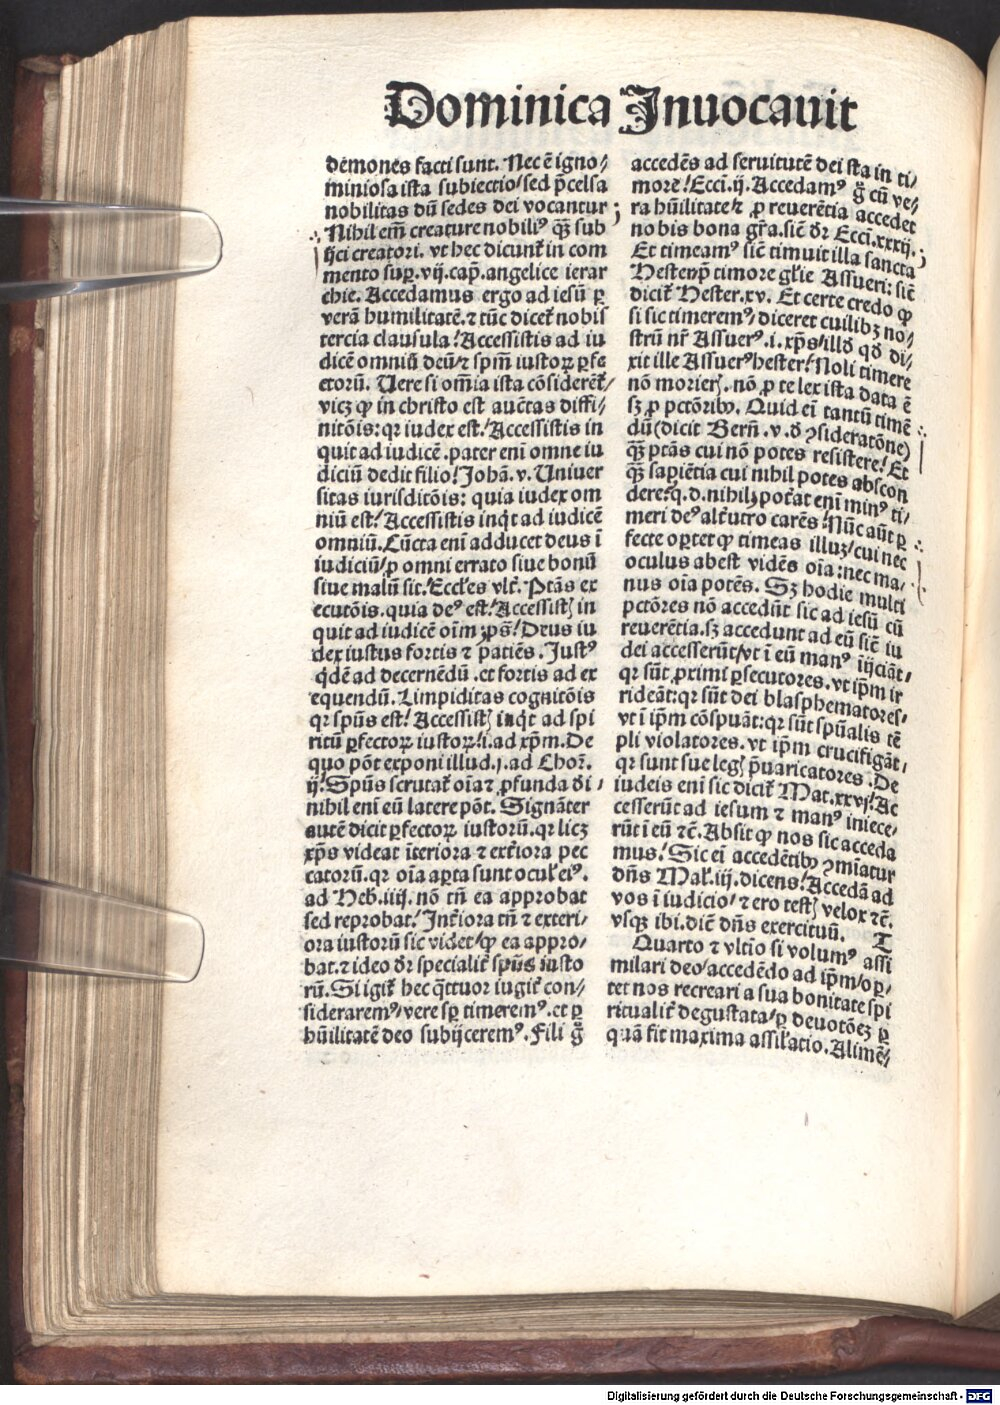 Dominica Inuocauit
demones facti sunt. Nec ē igno⸗
miniosa ista subiectio/sed p̄celsa
nobilitas dū sedes dei vocantur
Nihil em̄ creature nobiliꝰ qꝫ sub
ijci creatori. vt hec dicunt̄ in com
mento suꝑ .vij. cap̄. angelice ierar
chie. Accedamus ergo ad iesū ꝑ
verā humilitatē. ⁊ tūc dicet̄ nobis
tercia clausula! Accessistis ad iu
dicē omniū deū/⁊ spm̄ iustoꝝ ꝑfe
ctorū. Vere si om̄ia ista cōsiderēt̄/
vicꝫ ꝙ in christo est auc̄tas diffi⸗
nitōis: qꝛ iudex est! Accessistis in
quit ad iudicē .pater eni omne iu
diciū dedit filio! Johā. v. Uniuer
sitas iurisditōis: quia iudex om
niū est! Accessistis inq̇t ad iudicē
omniū. Cūcta eni adducet deus ī
iudiciū/ꝓ omni errato siue bonū
siue malū sit. Eccl'es vlt̄. Ptās ex
ecutōis. quia deꝰ est! Accessistꝭ in
quit ad iudicē oīm ꝛps̄! Deus iu
dex iustus fortis ⁊ patiēs. Justꝰ
q̇dē ad decernēdū .et fortis ad ex
equendū. Limpiditas cognitōis
qꝛ spūs est! Accessistꝭ inq̇t ad spi
ritū ꝑfectoꝝ iustoꝝ! i. ad xp̄m. De
quo pōt exponi illud .j. ad Choꝝ.
ij! Spūs scrutat̄ oīa ⁊ ꝓfunda di
nihil eni eū latere pōt. Signāter
autē dicit ꝑfectoꝝ iustorū. qꝛ licꝫ
xp̄s videat īteriora ⁊ ext̄iora pec
catorū. qꝛ oīa aꝑta sunt ocul' eiꝰ.
ad Heb. iiij. nō tn̄ ea approbat
sed reprobat! Int̄iora tn̄ ⁊ exteri⸗
ora iustorū sic videt/ꝙ ea appro⸗
bat. ⁊ ideo dr̄ specialit̄ spūs iusto
rū. Si igit̄ hec q̄ttuor iugit̄ con⸗
sideraremꝰ/vere sꝑ timeremꝰ. et ꝑ
hūilitatē deo subijceremꝰ. Fili g̊
accedēs ad seruitutē dei sta in ti⸗
more! Ecci. ij. Accedamꝰ g̊ cū ve⸗
ra hūilitate/⁊ ꝓ reuerētia accedet
nobis bona gr̄a. sic̄ dr̄ Ecci. xxxij.
Et timeamꝰ sic̄ timuit illa sancta
Hester/p̄ timore gl'ie Assueri: sic̄
dicit̄ Hester. xv. Et certe credo ꝙ
si sic timeremꝰ/diceret cuilibꝫ no⸗
strū nr̄ Assuerꝰ. i. xp̄s/illd̄ qd̄ di⸗
xit ille Assuerꝰ hester! Noli timere
nō morierꝭ. nō ꝓ te lex ista data ē
sꝫ ꝓ pctōribꝰ. Quid eī tantū timē
dū (dicit Bern̄. v. d̄ ꝯsideratōne)
qꝫ ptās cui nō potes resistere! Et
qꝫ sapiētia cui nihil potes abscon
dere? q. d. nihil; pot̄at eni minꝰ ti⸗
meri deꝰ alt̄utro carēs! Nūc aūt ꝑ
fecte oꝑtet ꝙ timeas illuꝫ/cui nec
oculus abest vidēs oīa: nec ma⸗
nus oīa potēs. Sꝫ hodie multi
pctōres nō accedūt sic ad iesū cū
reuerētia. sꝫ accedunt ad eū sic̄ iu
dei accesserūt/vt ī eū manꝰ iijciāt⸗
qꝛ sūt ꝓximi ꝑsecutores. vt ip̄m ir
rideāt: qꝛ sūt dei blasphematores⸗
vt ī ip̄m cōspuāt: qꝛ sūt spūalis tē
pli violatores. vt ip̄m crucifigāt⸗
qꝛ sunt sue legꝭ p̄uaricatores. De
iudeis eni sic dicit̄ Mat. xxvj! Ac
cesserūt ad iesum ⁊ manꝰ iniece⸗
rūt ī eū ⁊c̄. Absit ꝙ nos sic acceda
mus! Sic eī accedētibꝰ ꝯmīatur
dn̄s Mal'. iij. dicens! Accedā ad
vos ī iudicio/⁊ ero testꝭ velox ⁊c̄.
vsqꝫ ibi. dic̄ dn̄s exercituū. T
Quarto ⁊ vltīo si volumꝰ assi
milari deo/accedēdo ad ip̄m/oꝑ⸗
tet nos recreari a sua bonitate spi
ritualit̄ degustata/ꝑ deuotōeꝫ ꝑ
quā fit maxima assil'atio. Alimē⸗
Digitalisierung gefördert durch die Deutsche Forschungsgemeinschaft - DFG